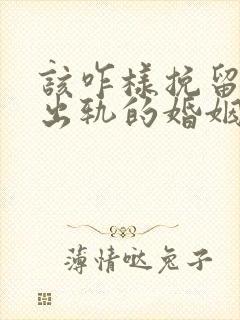 該咋樣挽留
出軌的婚姻
薄情哒兔子